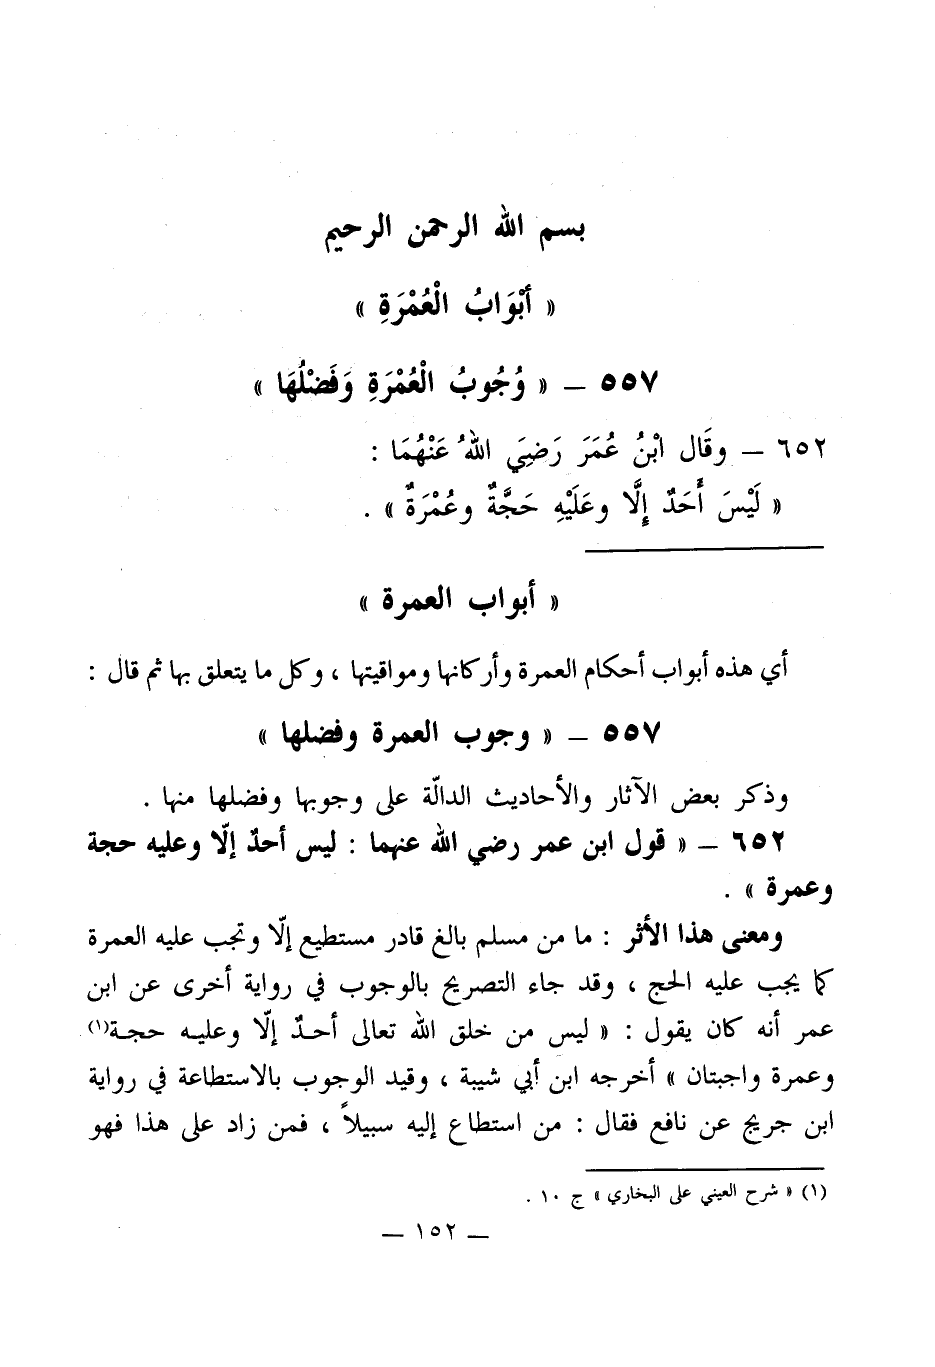 بسم الله الرحمن الرحيم
« أَبْوَابُ الْعُمْرَةِ »
٥٥٧ – « وُجُوبُ الْعُمْرَةِ وَفَضْلُهَا »
٦٥٢ – وقَال ابْنُ عُمَرَ رَضِيَ اللهُ عَنْهُمَا :
« لَيْسَ أَحَدٌ إِلَّا وعَلَيْهِ حَجَّةٌ وعُمْرَةٌ » .
« أبواب العمرة »
أي هذه أبواب أحكام العمرة وأركانها ومواقيتها ، وكل ما يتعلق بها ثم قال :
٥٥٧ – « وجوب العمرة وفضلها »
وذكر بعض الآثار والأحاديث الدالّة على وجوبها وفضلها منها .
٦٥٢ – « قول ابن عمر رضي الله عنهما : ليس أحدٌ إلّا وعليه حجة
وعمرة » .
ومعنى هذا الأثر : ما من مسلم بالغ قادر مستطيع إلّا وتجب عليه العمرة
كما يجب عليه الحج ، وقد جاء التصريح بالوجوب في رواية أخرى عن ابن
عمر أنه كان يقول : « ليس من خلق الله تعالى أحدٌ إلّا وعليه حجة(١)
وعمرة واجبتان » أخرجه ابن أبي شيبة ، وقيد الوجوب بالاستطاعة في رواية
ابن جريج عن نافع فقال : من استطاع إليه سبيلاً ، فمن زاد على هذا فهو
(١) « شرح العيني على البخاري » ج ١٠ .
– ١٥٢ –